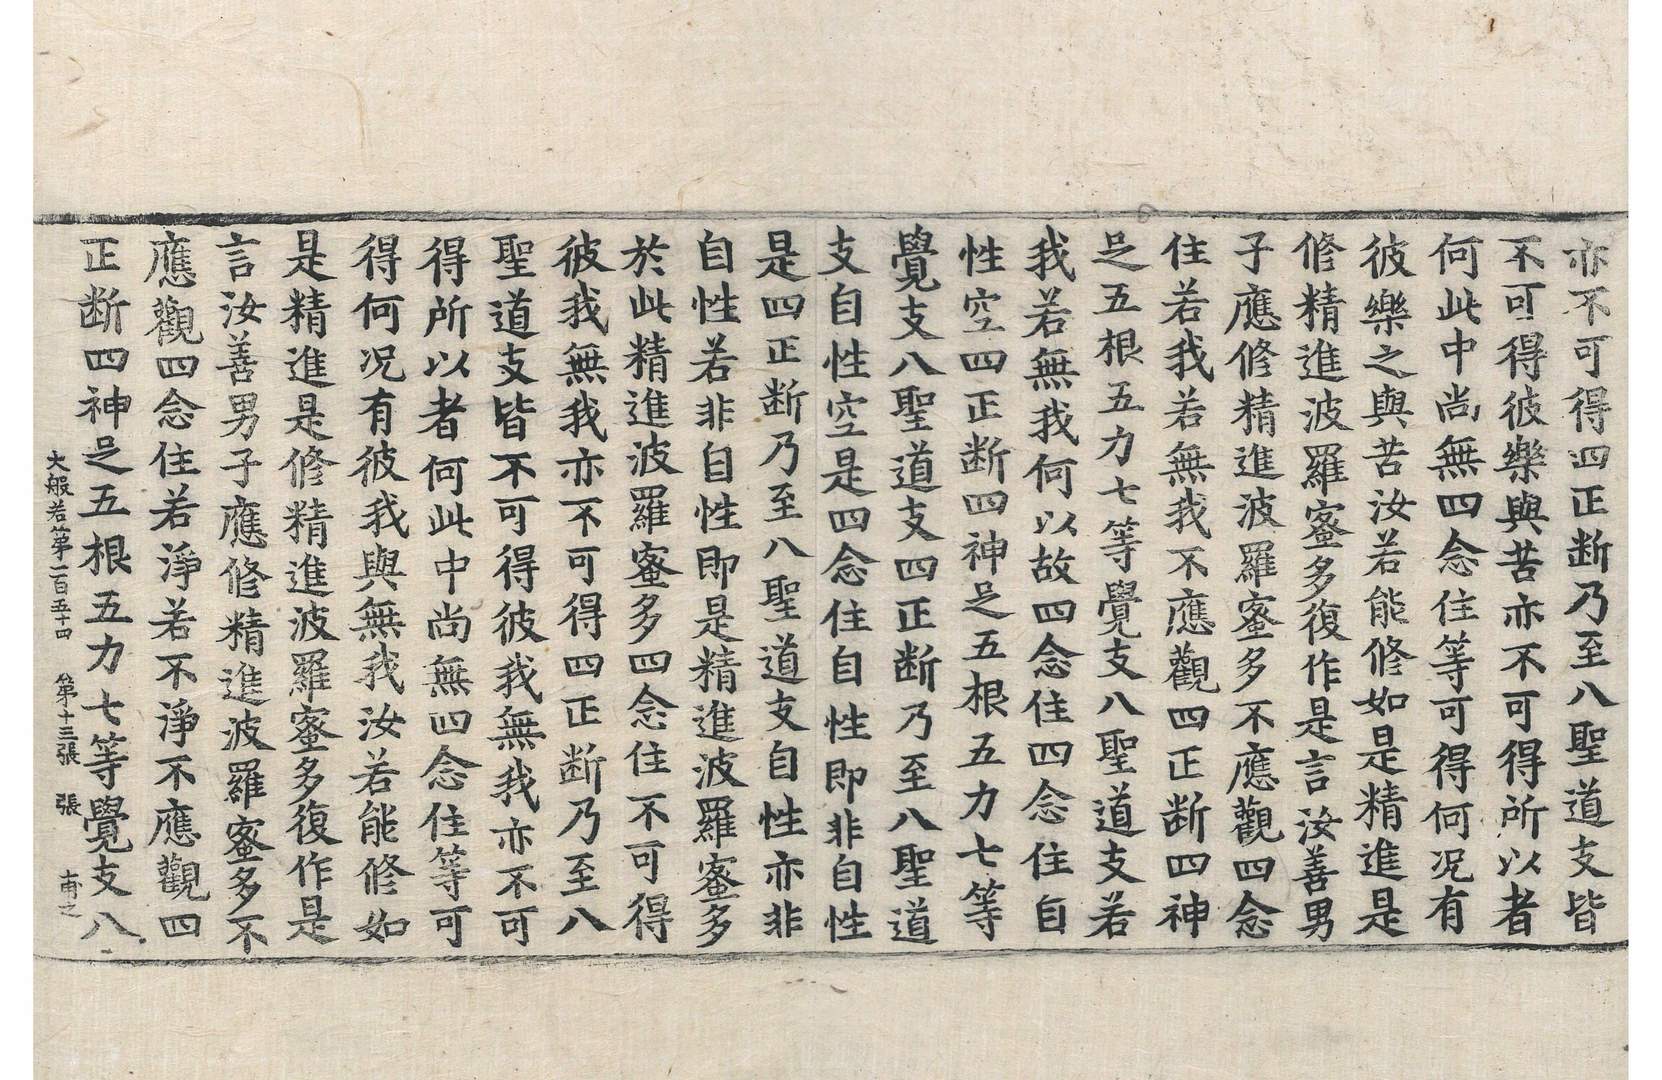 亦不可得四正断乃至八聖道支皆
不可得彼樂與苦亦不可得所以者
何此中尚無四念住等可得何况有
彼樂之與苦汝若能修如是精進是
修精進波羅蜜多復作是言汝善男
子應修精進波羅蜜多不應觀四念
住若我若無我不應觀四正断四神
足五根五力七等覺支八聖道支若
我若無我何以故四念住四念住自
性空四正断四神足五根五力七等
覺支八聖道支四正断乃至八聖道
支自性空是四念住自性即非自性
是四正断乃至八聖道支自性亦非
自性若非自性即是精進波羅蜜多
於此精進波羅蜜多四念住不可得
彼我無我亦不可得四正断乃至八
聖道支皆不可得彼我無我亦不可
得所以者何此中尚無四念住等可
得何况有彼我與無我汝若能修如
是精進是修精進波羅蜜多復作是
言汝善男子應修精進波羅蜜多不
應觀四念住若淨若不淨不應觀四
正断四神足五根五力七等覺支八
大般若第一百五十四 第十三張 張 甫之